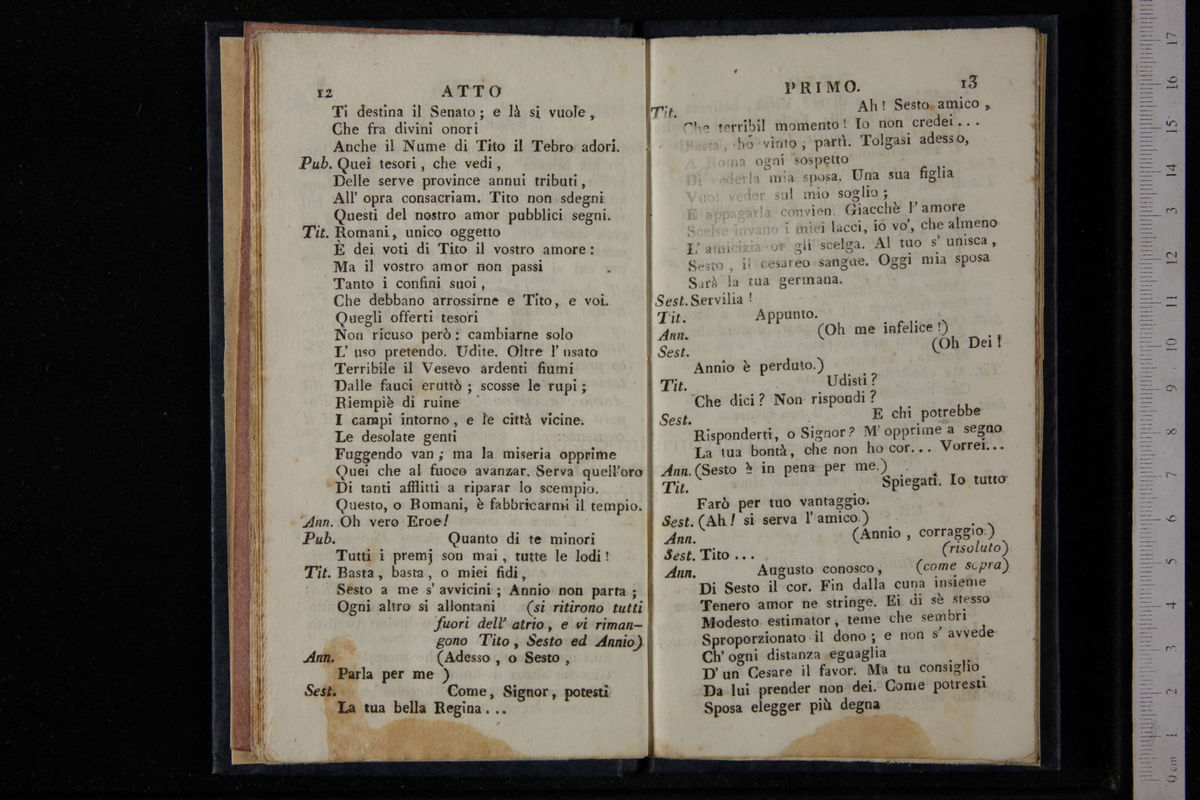 12 ATTO
Ti destina il Senato; e là si vuole,
Che fra divini onori
Anche il Nume di Tito il Tebro adori.
Pub. Quei tesori, che vedi,
Delle serve province annui tributi,
All' opra consacriam. Tito non sdegni
Questi del nostro amor pubblici segni.
Tit. Romani, unico oggetto
È dei voti di Tito il vostro amore:
Ma il vostro amor non passi
Tanto i confini suoi,
Che debbano arrossirne e Tito, e voi.
Quegli offerti tesori
Non ricuso però: cambiarne solo
L' uso pretendo. Udite. Oltre l' usato
Terribile il Vesevo ardenti fiumi
Dalle fauci eruttò; scosse le rupi;
Riempiè di ruine
I campi intorno, e le città vicine.
Le desolate genti
Fuggendo van; ma la miseria opprime
Quei che al fuoco avanzar. Serva quell'oro
Di tanti afflitti a riparar lo scempio.
Questo, o Romani, è fabbricarmi il tempio.
Ann. Oh vero Eroe!
Pub. Quanto di te minori
Tutti i premj son mai, tutte le lodi!
Tit. Basta, basta, o miei fidi,
Sesto a me s' avvicini; Annio non parta;
Ogni altro si allontani (si ritirono tutti
fuori dell' atrio, e vi riman-
gono Tito, Sesto ed Annio)
Ann. (Adesso, o Sesto,
Parla per me )
Sest. Come, Signor, potesti
La tua bella Regina...
PRIMO. 13
Tit. Ah! Sesto amico,
Che terribil momento! Io non credei...
Basta, ho vinto, partì. Tolgasi adesso,
A Roma ogni sospetto
Di vederla mia sposa. Una sua figlia
Vuol veder sul mio soglio;
E appagarla convien. Giacchè l' amore
Scelse invano i miei lacci, io vo', che almeno
L' amicizia or gli scelga. Al tuo s' unisca,
Sesto, il cesareo sangue. Oggi mia sposa
Sarà la tua germana.
Sest. Servilia!
Tit. Appunto.
Ann. (Oh me infelice!)
Sest. (Oh Dei!
Annio è perduto.)
Tit. Udisti?
Che dici? Non rispondi?
Sest. E chi potrebbe
Risponderti, o Signor? M' opprime a segno
La tua bontà, che non ho cor... Vorrei...
Ann. (Sesto è in pena per me.)
Tit. Spiegati. Io tutto
Farò per tuo vantaggio.
Sest. (Ah! si serva l' amico.)
Ann. (Annio, corraggio.)
Sest. Tito... (risoluto)
Ann. Augusto conosco, (come sopra)
Di Sesto il cor. Fin dalla cuna insieme
Tenero amor ne stringe. Ei di sè stesso
Modesto estimator, teme che sembri
Sproporzionato il dono; e non s' avvede
Ch' ogni distanza eguaglia
D' un Cesare il favor. Ma tu consiglio
Da lui prender non dei. Come potresti
Sposa elegger più degna
0 cm 1 2 3 4 5 6 7 8 9 10 11 12 3 14 15 16 17